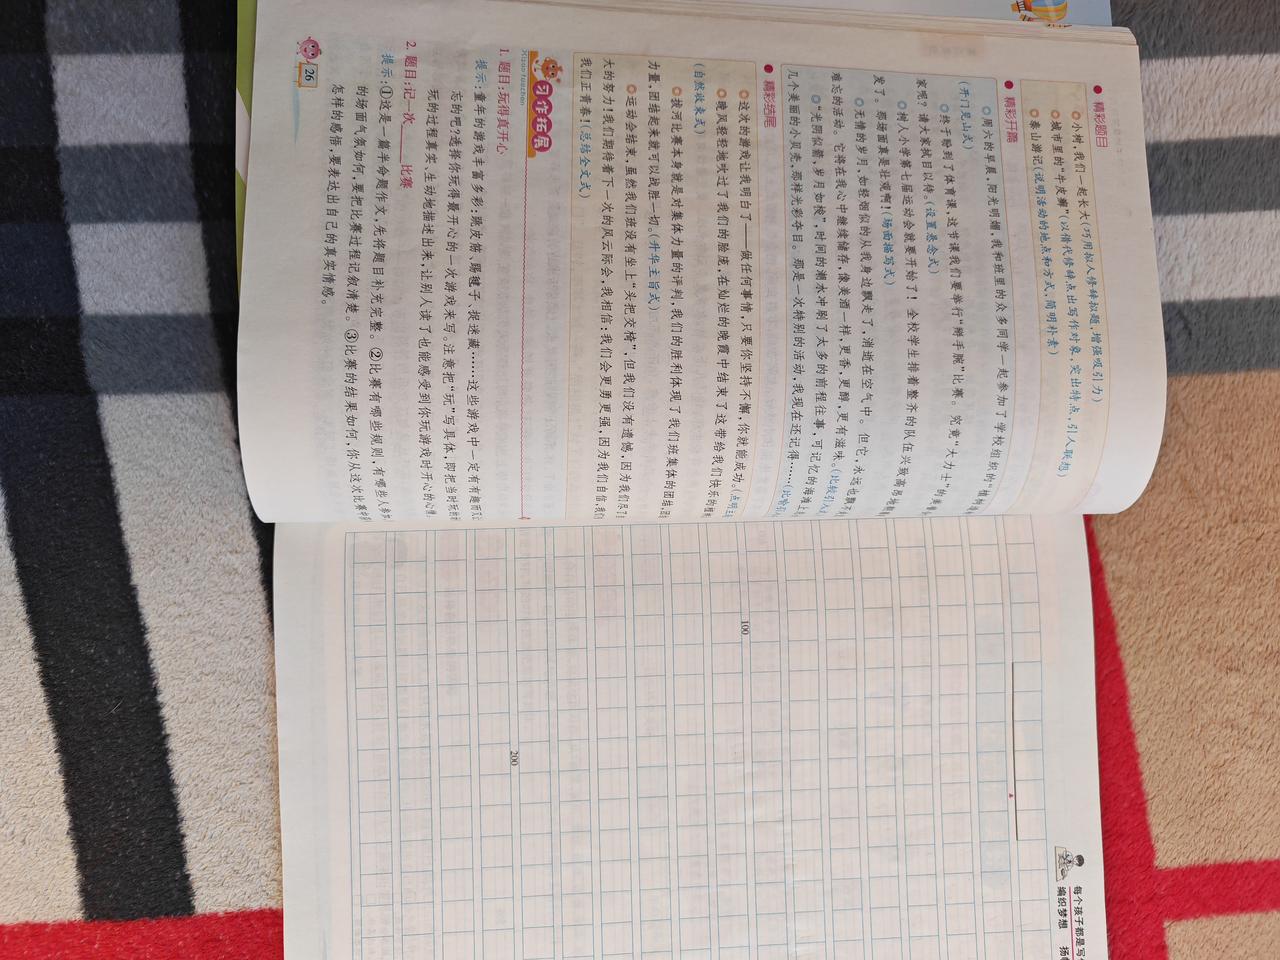 精彩题目
小树,我们一起长大(巧用拟人修辞拟题,增强吸引力)
城市里的“牛皮癣”(以借代修辞点出写作对象,突出特点,引人联想)
泰山游记(说明活动的地点和方式,简明朴素)
精彩开篇
周六的早晨,阳光明媚,我和班里的众多同学一起参加了学校组织的“植树
(开门见山式)
终于盼到了体育课,这节课我们要举行“掰手腕”比赛。究竟“大力士”的
家呢?请大家拭目以待。(设置悬念式)
树人小学第七届运动会就要开始了!全校学生排着整齐的队伍兴致高昂地
发了。那场面真是壮观啊!(场面描写式)
无情的岁月,如轻烟似的从我身边飘走了,消逝在空气中。但它,永远也飘不
难忘的活动。它将在我心中继续储存,像美酒一样,更香,更醇,更有滋味。(比较引入
“光阴似箭,岁月如梭”,时间的潮水冲刷了太多的前程往事,可记忆的海滩上
几个美丽的小贝壳,那样光彩夺目。那是一次特别的活动,我现在还记得……(比喻引
精彩结尾
这次的游戏让我明白了——做任何事情,只要你坚持不懈,你就能成功。(点明
晚风轻轻地吹过了我们的脸庞,在灿烂的晚霞中结束了这带给我们快乐的
(自然收束式)
拔河比赛本身就是对集体力量的评判,我们的胜利体现了我们班集体的团结,团
力量,团结起来就可以战胜一切。(升华主旨式)
运动会结束,虽然我们班没有坐上“头把交椅”,但我们没有遗憾,因为我们尽了
大的努力!我们期待着下一次的风云际会,我相信:我们会更勇更强,因为我们自信,我们
我们正青春!(总结全文式)
习作拓展
Xizuo tuozhan
1. 题目:玩得真开心
提示:童年的游戏丰富多彩:跳皮筋、踢毽子、捉迷藏……这些游戏中一定有有趣而又
忘的吧?选择你玩得最开心的一次游戏来写。注意把“玩”写具体,即把当时玩的
玩的过程真实、生动地描述出来,让别人读了也能感受到你玩游戏时开心的心情
2. 题目:记一次______比赛
提示:①这是一篇半命题作文,先将题目补充完整。②比赛有哪些规则,有哪些人参加
的场面气氛如何,要把比赛过程记叙清楚。③比赛的结果如何,你从这次比赛中
怎样的感悟,要表达出自己的真实情感。
26
每个孩子都是写
编织梦想 扬
100
200